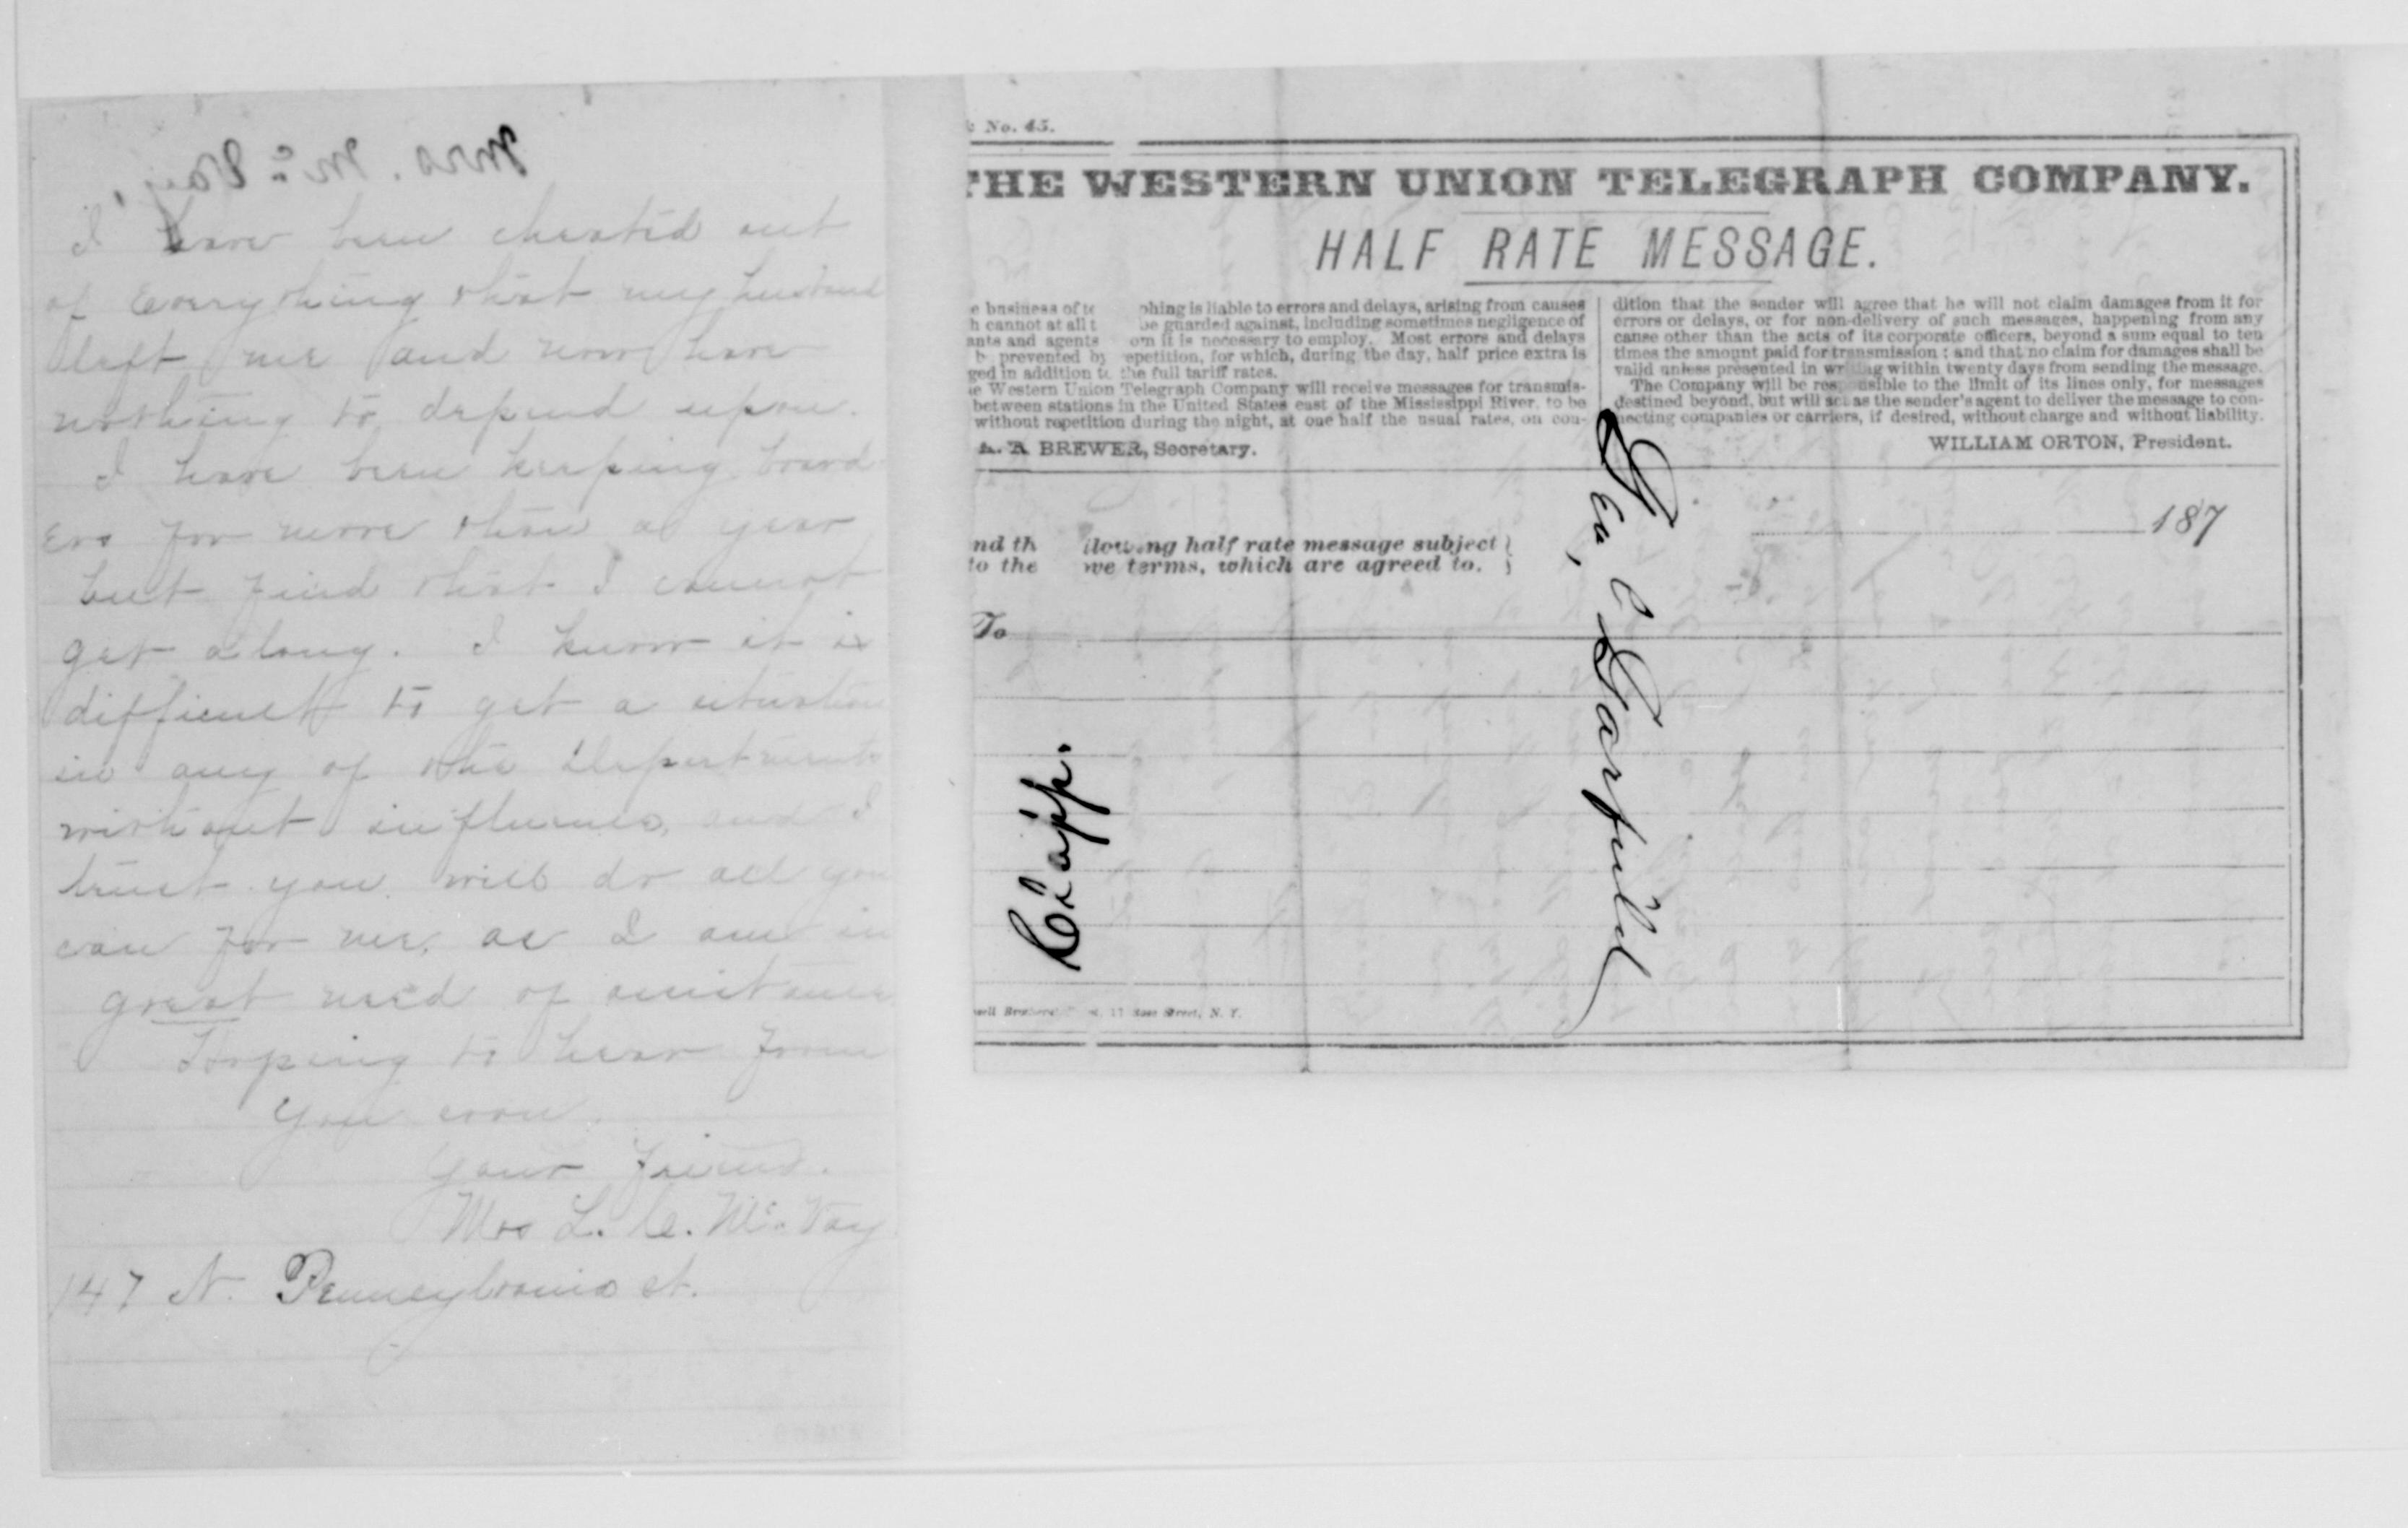 Mrs. McVay,
I have been cheated out
of Everything that my husband
left me and now have
nothing to depend upon.
I have been keeping board
Ers for more than a year
but find that I cannot
get along. I know it is
difficult to get a situation
in any of the Departments
without influence, and I
trust you will do all you
can for me, as I am in
great need of assistance
Hoping to hear from
you soon.
Your friend.
Mrs L. C. Mc.Vay
147 N. Pennsylvania st.
No. 45.
THE WESTERN UNION TELEGRAPH COMPANY.
HALF RATE MESSAGE.
e business of te phing is liable to errors and delays, arising from causes
h cannot at all t be guarded against, including sometimes negligence of
ants and agents om it is necessary to employ. Most errors and delays
b prevented by epetition, for which, during the day, half price extra is
ged in addition to the full tariff rates.
e Western Union Telegraph Company will receive messages for transmis-
between stations in the United States east of the Mississippi River, to be
without repetition during the night, at one half the usual rates, on con-
dition that the sender will agree that he will not claim damages from it for
errors or delays, or for non-delivery of such messages, happening from any
cause other than the acts of its corporate officers, beyond a sum equal to ten
times the amount paid for transmission; and that no claim for damages shall be
valid unless presented in writing within twenty days from sending the message.
The Company will be responsible to the limit of its lines only, for messages
destined beyond, but will act as the sender's agent to deliver the message to con-
necting companies or carriers, if desired, without charge and without liability.
A BREWER, Secretary.
WILLIAM ORTON, President.
187
nd th llowing half rate message subject
to the ve terms, which are agreed to.
To
Clapp.
Garfield
Street, N. Y.